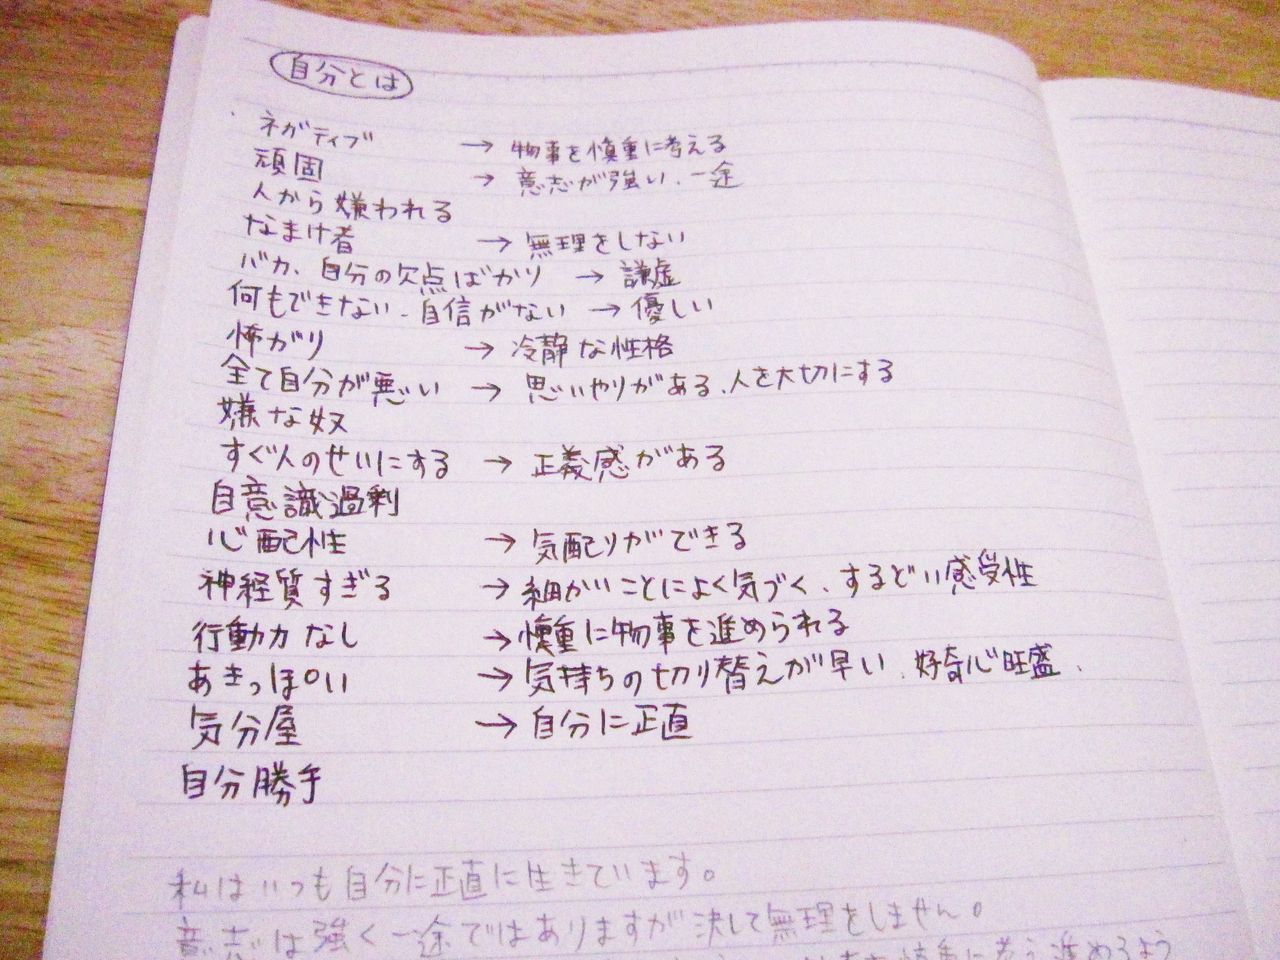 自分とは
ネガティブ → 物事を慎重に考える
頑固 → 意志が強い、一途
人から嫌われる
なまけ者 → 無理をしない
バカ、自分の欠点ばかり → 謙虚
何もできない、自信がない → 優しい
怖がり → 冷静な性格
全て自分が悪い → 思いやりがある、人を大切にする
嫌な奴
すぐ人のせいにする → 正義感がある
自意識過剰
心配性 → 気配りができる
神経質すぎる → 細かいことによく気づく、するどい感受性
行動力なし → 慎重に物事を進められる
あきっぽい → 気持ちの切り替えが早い、好奇心旺盛、
気分屋 → 自分に正直
自分勝手
私はいつも自分に正直に生きています。
意志は強く一途ではありますが決して無理をしません。
慎重に考え進めるよう